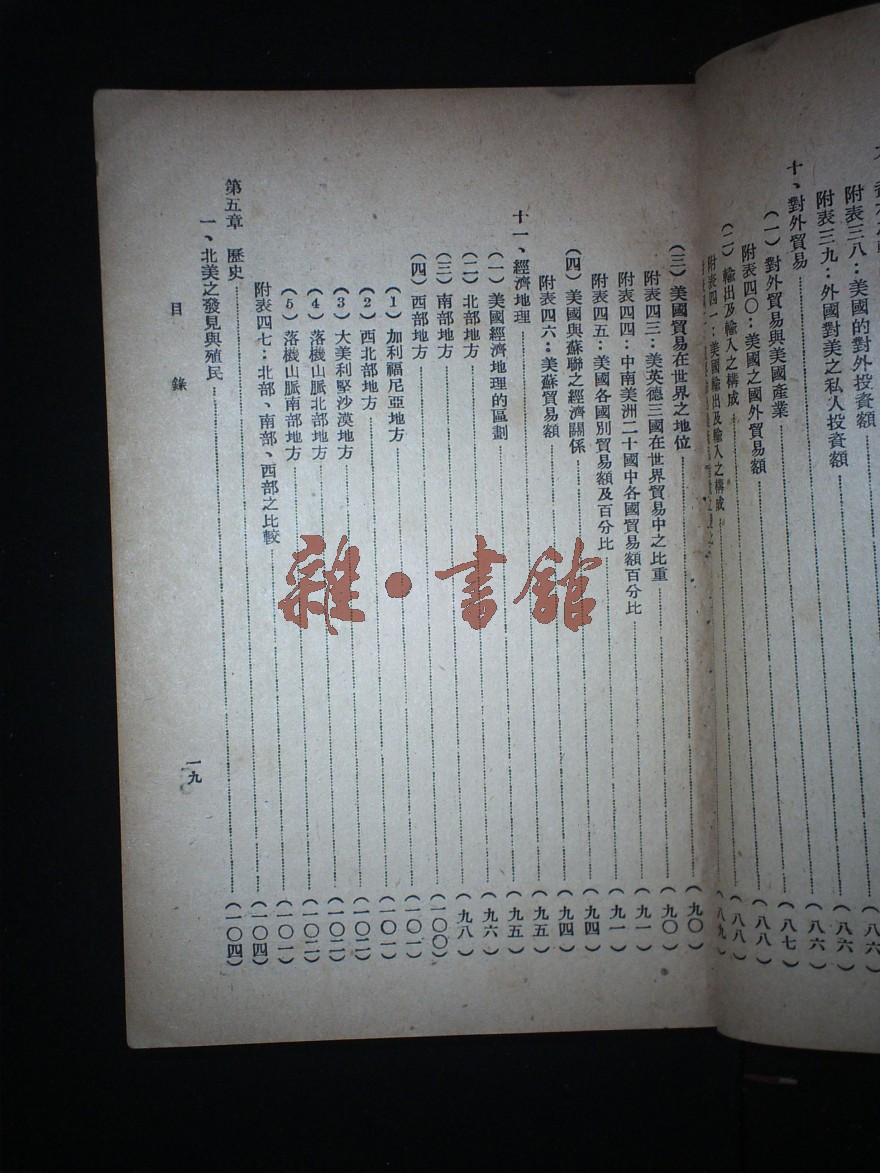 附表三八：美國的對外投資額（八六）
附表三九：外國對美之私人投資額（八六）
十、對外貿易（八六）
（一）對外貿易與美國產業（八七）
附表四〇：美國之國外貿易額（八八）
（二）輸出及輸入之構成（八八）
附表四一：美國輸出及輸入之構成（八九）
（三）美國貿易在世界之地位（九〇）
附表四三：美英德三國在世界貿易中之比重（九〇）
附表四四：中南美洲二十國中各國貿易額百分比（九一）
附表四五：美國各國別貿易額及百分比（九一）
（四）美國與蘇聯之經濟關係（九四）
附表四六：美蘇貿易額（九四）
十一、經濟地理（九五）
（一）美國經濟地理的區劃（九五）
（二）北部地方（九六）
（三）南部地方（九八）
（四）西部地方（一〇〇）
（1）加利福尼亞地方（一〇一）
（2）西北部地方（一〇一）
（3）大美利堅沙漠地方（一〇二）
（4）落機山脈北部地方（一〇二）
（5）落機山脈南部地方（一〇二）
附表四七：北部、南部、西部之比較（一〇一）
第五章 歷史（一〇四）
一、北美之發見與殖民（一〇四）
目錄
一九
雜·書館